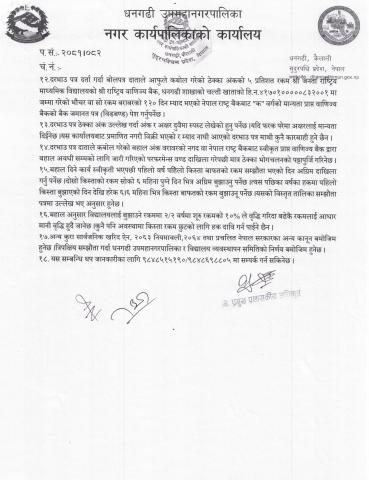 धनगढी उपमहानगरपालिका
नगर कार्यपालिकाको कार्यालय
धनगढी, कैलाली
सुदुरपश्चिम प्रदेश, नेपाल
प.सं.: २०८१/०८२
१२.दरभाउ पत्र दर्ता गर्दा बोलपत्र दाताले आफुले कबोल गरेको ठेक्का अंकको ५ प्रतिशत रकम श्री जनता राष्ट्रिय
माध्यमिक विद्यालयको श्री राष्ट्रिय वाणिज्य बैंक, धनगढी शाखाको चल्ती खाताको हि.नं. मा
जम्मा गरेको भौचर वा सो रकम बराबरको १२० दिन म्याद भएको नेपाल राष्ट्र बैंकबाट "क" वर्गको मान्यता प्राप्त वाणिज्य
बैंकको बैंक जमानत पत्र (विडबण्ड) पेश गर्नुपर्नेछ।
१३.दरभाउ पत्र ठेक्का अंक उल्लेख गर्दा अंक र अक्षर दुवैमा स्पस्ट लेखेको हुनु पर्नेछ।यदि फरक परेमा अक्षरलाई मान्यता
दिईनेछ।यस कार्यालयबाट प्रमाणित नगरी बिक्री भएको र म्याद नाघी आएको दरभाउ पत्र माथी कुनै कारबाही हुने छैन।
१४.दरभाउ पत्र दाताले कबोल गरेको बहाल अंक बराबरको नगद वा नेपाल राष्ट्र बैंकबाट स्वीकृत प्राप्त वाणिज्य बैंक द्वारा
बहाल अवधी सम्मको लागि जारी गरिएको परफरमेन्स वण्ड दाखिला गरेपछी मात्र ठेक्का भोगचलनको पट्टापुर्जि गरिनेछ।
१५.बहाल दिने कार्य स्वीकृती भएपछी पहिलो वर्ष पहिलो किस्ता बाफतको रकम सम्झौता भएको दिन अग्रिम दाखिला
गर्नु पर्नेछ।दोस्रो किस्ताको रकम सोको ६ महिना पुग्ने दिन भित्र अग्रिम बुझाउनु पर्नेछ।त्यस पछिका वर्षका हकमा पहिलो
किस्ता बुझाएको दिन देखि हरेक ६/६ महिना भित्र किस्ता बाफतको रकम बुझाउनु पर्नेछ।त्यसको विस्तृत तालिका सम्झौता
पत्रमा उल्लेख भए अनुसार हुनेछ।
१६.बहाल अनुसार विद्यालयलाई बुझाउने रकममा २/२ वर्षमा शुरु रकमको १०% ले वृद्धि गरिदा बढेकै रकमलाई आधार
मानी वृद्धि हुदै जानेछ।कुनै पनि अवस्थामा किस्ता रकम छुटको लागि हक दावि गर्न पाईने छैन।
१७.अन्य कुरा सार्वजनिक खरिद ऐन, २०६३ नियमावली,२०६४ तथा प्रचलित नेपाल सरकारका अन्य कानून बमोजिम
हुनेछ। सम्झौता गर्दा धनगढी उपमहानगरपालिका र विद्यालय व्यवस्थापन समितिको निर्णय बमोजिम हुनेछ।
१८. यस सम्बन्धि थप जानकारीका लागि ९८४८५१५१९०/९८४८६९८८०५ मा सम्पर्क गर्न सकिनेछ।
प्रमुख प्रशासकीय अधिकृत